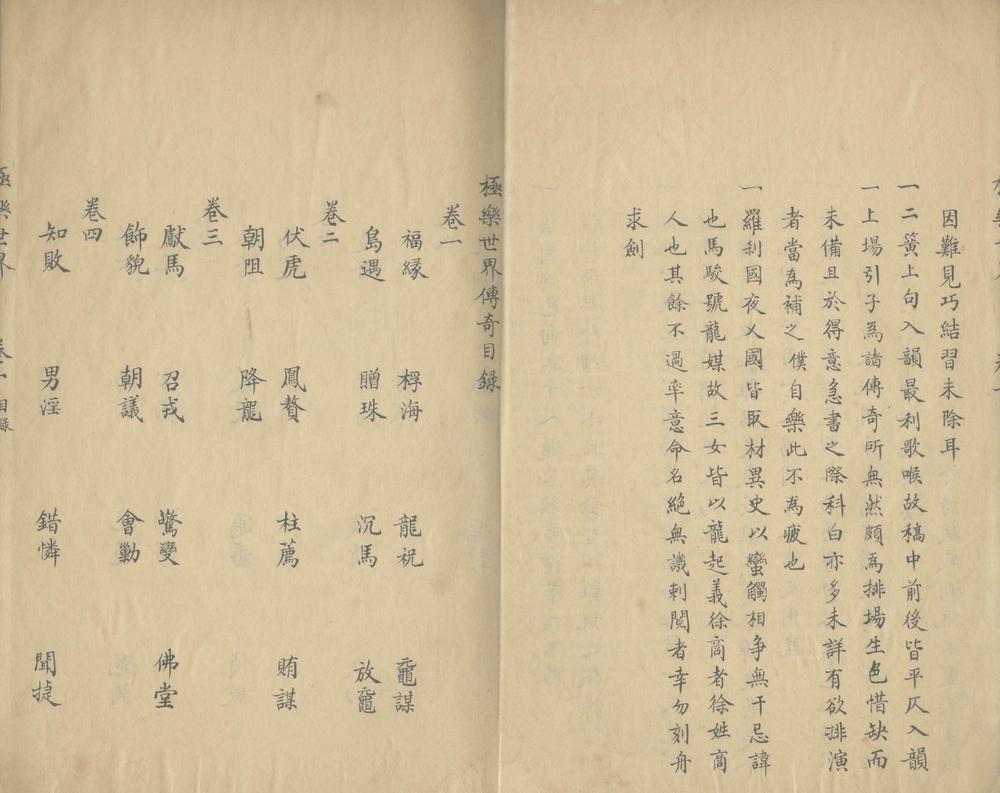 因難見巧結習未除耳
一二簧上句入韻最利歌喉故稿中前後皆平仄入韻
一上場引子為諸傳奇所無然頗為排場生色惜缺而
未備且於得意急書之際科白亦多未詳有欲排演
者當為補之僕自樂此不為疲也
一羅刹國夜乂國皆取材異史以蠻觸相爭無干忌諱
也馬駿號龍媒故三女皆以龍起義徐商者徐姓商
人也其餘不過率意命名絕無譏刺閱者幸勿刻舟
求劍
極樂世界傳奇目錄
卷一
福緣 桴海 龍祝 黿謀
島遇 贈珠 沉馬 放黿
卷二
伏虎 鳳贅 柱薦 賄謀
朝阻 降寵
卷三
獻馬 召戎 驚變 佛堂
飾貌 朝議 會勦
卷四
知敗 男淫 錯憐 聞捷
極樂世界 卷 目錄